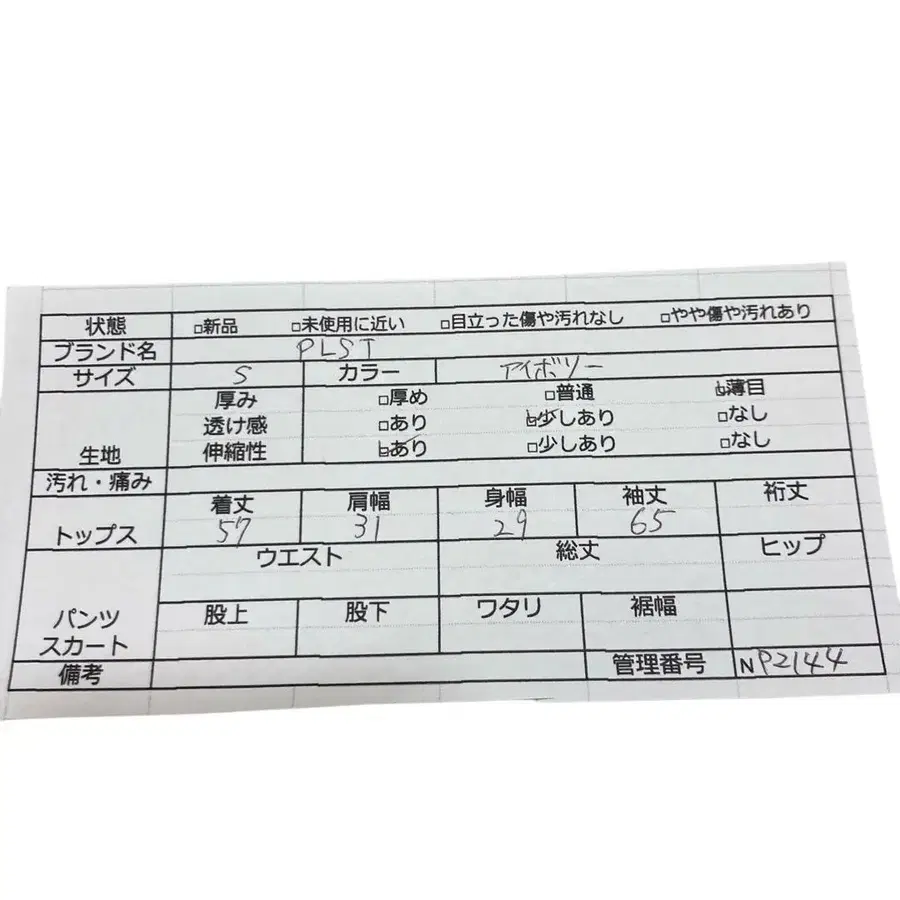 状態 □新品 □未使用に近い □目立った傷や汚れなし □やや傷や汚れあり
ブランド名 PLST
サイズ S カラー アイボリー
厚み □厚め □普通 ☑薄目
透け感 □あり ☑少しあり □なし
生地 伸縮性 ☑あり □少しあり □なし
汚れ・痛み
着丈 肩幅 身幅 袖丈 裄丈
トップス 57 31 29 65
ウエスト 総丈 ヒップ
股上 股下 ワタリ 裾幅
パンツ
スカート
備考 管理番号 NP2144